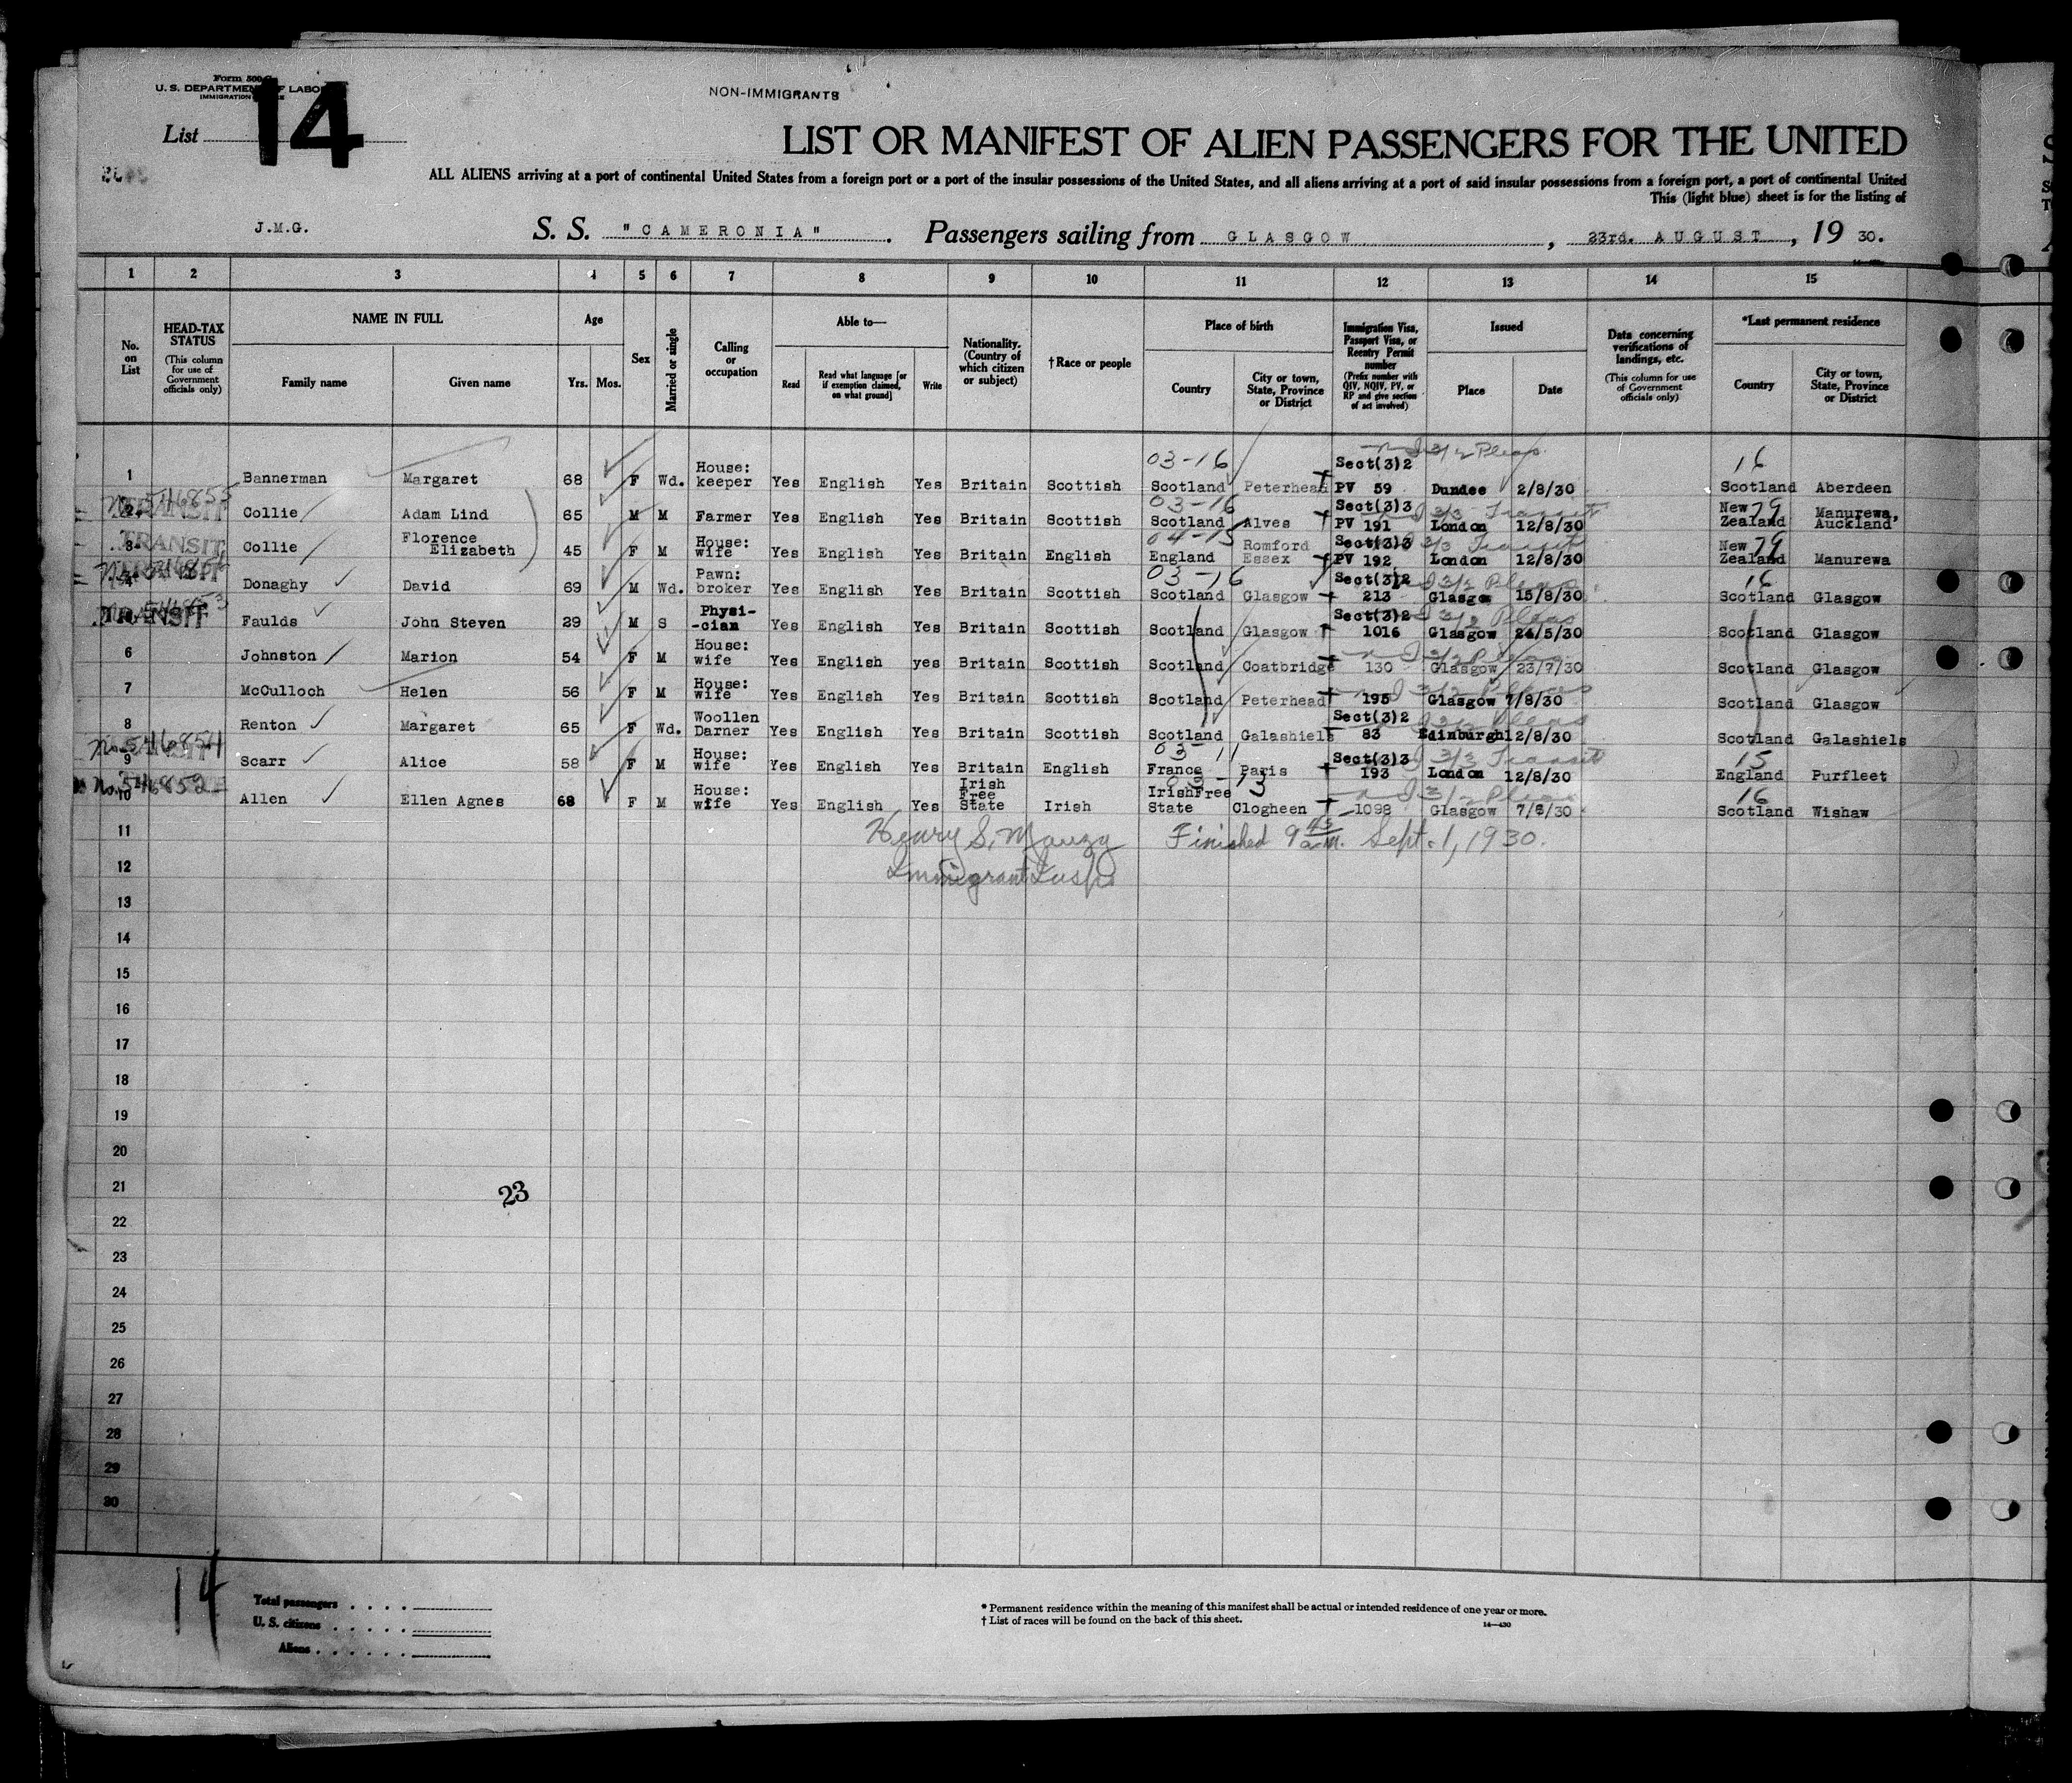 Form 500
U. S. DEPARTMENT OF LABOR
IMMIGRATION
NON-IMMIGRANTS
List 14
LIST OR MANIFEST OF ALIEN PASSENGERS FOR THE UNITED
ALL ALIENS arriving at a port of continental United States from a foreign port or a port of the insular possessions of the United States, and all aliens arriving at a port of said insular possessions from a foreign port, a port of continental United
This (light blue) sheet is for the listing of
J.M.G. S. S. "CAMERONIA". Passengers sailing from GLASGOW, 23rd. AUGUST, 19 30.
1 2 3 4 5 6 7 8 9 10 11 12 13 14 15
No. on List
HEAD-TAX STATUS (This column for use of Government officials only)
NAME IN FULL
Family name Given name
Age
Yrs. Mos.
Sex
Married or single
Calling or occupation
Able to—
Read Read what language [or if exemption claimed, on what ground] Write
Nationality. (Country of which citizen or subject)
†Race or people
Place of birth
Country City or town, State, Province or District
Immigration Visa, Passport Visa, or Reentry Permit number (Prefix number with QIV, NQIV, PV, or RP and give section of act involved)
Issued
Place Date
Data concerning verifications of landings, etc. (This column for use of Government officials only)
*Last permanent residence
Country City or town, State, Province or District
03-16 3/2 Pleas. 16
1 Bannerman Margaret 68 F Wd. House: keeper Yes English Yes Britain Scottish Scotland Peterhead Sect(3)2 PV 59 Dundee 2/8/30 Scotland Aberdeen
No. 546855 TRANSIT 03-16 3/3 Transit 79
2 Collie Adam Lind 65 M M Farmer Yes English Yes Britain Scottish Scotland Alves Sect(3)3 PV 191 London 12/8/30 New Zealand Manurewa, Auckland
TRANSIT 04-15 3/3 Transit 79
3 Collie Florence Elizabeth 45 F M House: wife Yes English Yes Britain English England Romford Essex Sect(3)3 PV 192 London 12/8/30 New Zealand Manurewa
TRANSIT 03-16 3/2 Pleas 16
4 Donaghy David 69 M Wd. Pawn: broker Yes English Yes Britain Scottish Scotland Glasgow Sect(3)2 213 Glasgow 15/8/30 Scotland Glasgow
TRANSIT 3/2 Pleas
Faulds John Steven 29 M S Physi- -cian Yes English Yes Britain Scottish Scotland Glasgow Sect(3)2 1016 Glasgow 26/5/30 Scotland Glasgow
6 Johnston Marion 54 F M House: wife Yes English yes Britain Scottish Scotland Coatbridge 3/2 Pleas 130 Glasgow 23/7/30 Scotland Glasgow
7 McCulloch Helen 56 F M House: wife Yes English Yes Britain Scottish Scotland Peterhead 3/2 Pleas 195 Glasgow 7/8/30 Scotland Glasgow
8 Renton Margaret 65 F Wd. Woollen Darner Yes English Yes Britain Scottish Scotland Galashiels Sect(3)2 3/2 Pleas 83 Edinburgh 12/8/30 Scotland Galashiels
No. 546854 03-11 3/3 Transit 15
9 Scarr Alice 58 F M House: wife Yes English Yes Britain English France Paris Sect(3)3 193 London 12/8/30 England Purfleet
No. 546852 03-13 3/2 Pleas 16
10 Allen Ellen Agnes 68 F M House: wife Yes English Yes Irish Free State Irish IrishFree State Clogheen 1098 Glasgow 7/8/30 Scotland Wishaw
11 Finished 9 45 a.m. Sept. 1, 1930.
12
13
14
15
16
17
18
19
20
21
23
22
23
24
25
26
27
28
29
30
14
Total passengers
U. S. citizens
Aliens
* Permanent residence within the meaning of this manifest shall be actual or intended residence of one year or more.
† List of races will be found on the back of this sheet.
14—430